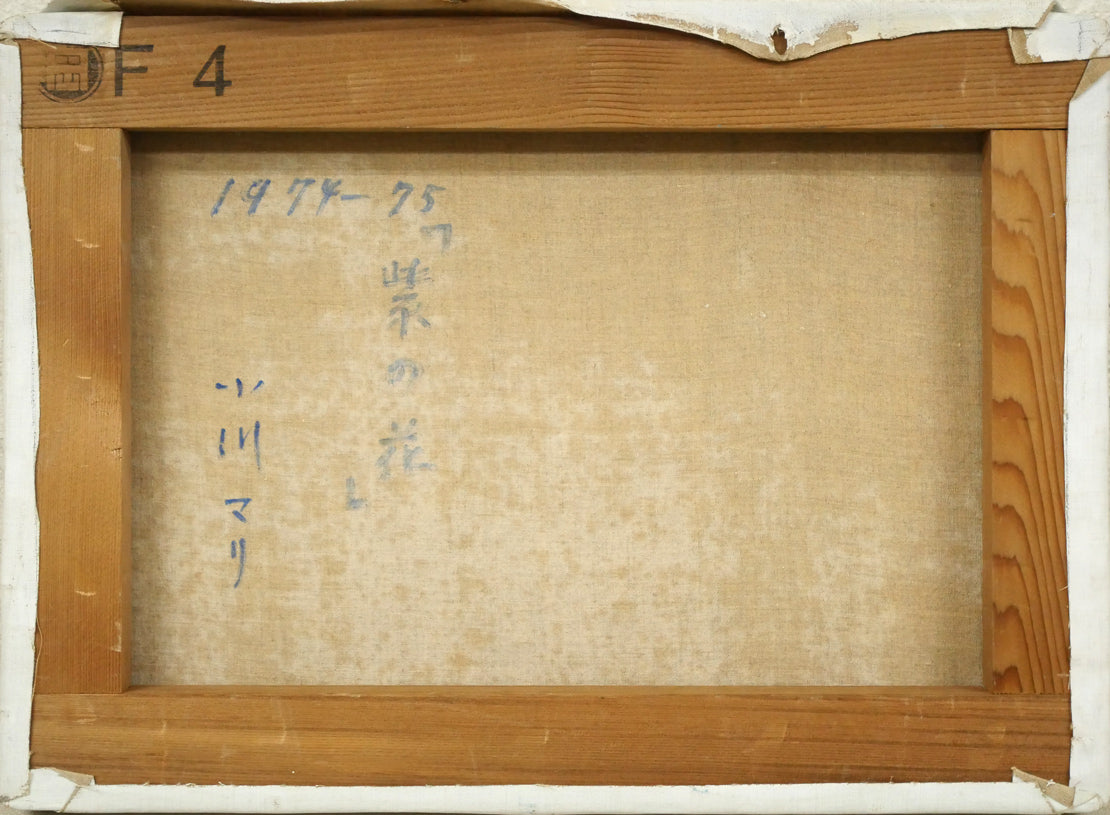 F 4
1974-75
「紫の花」
小川マリ